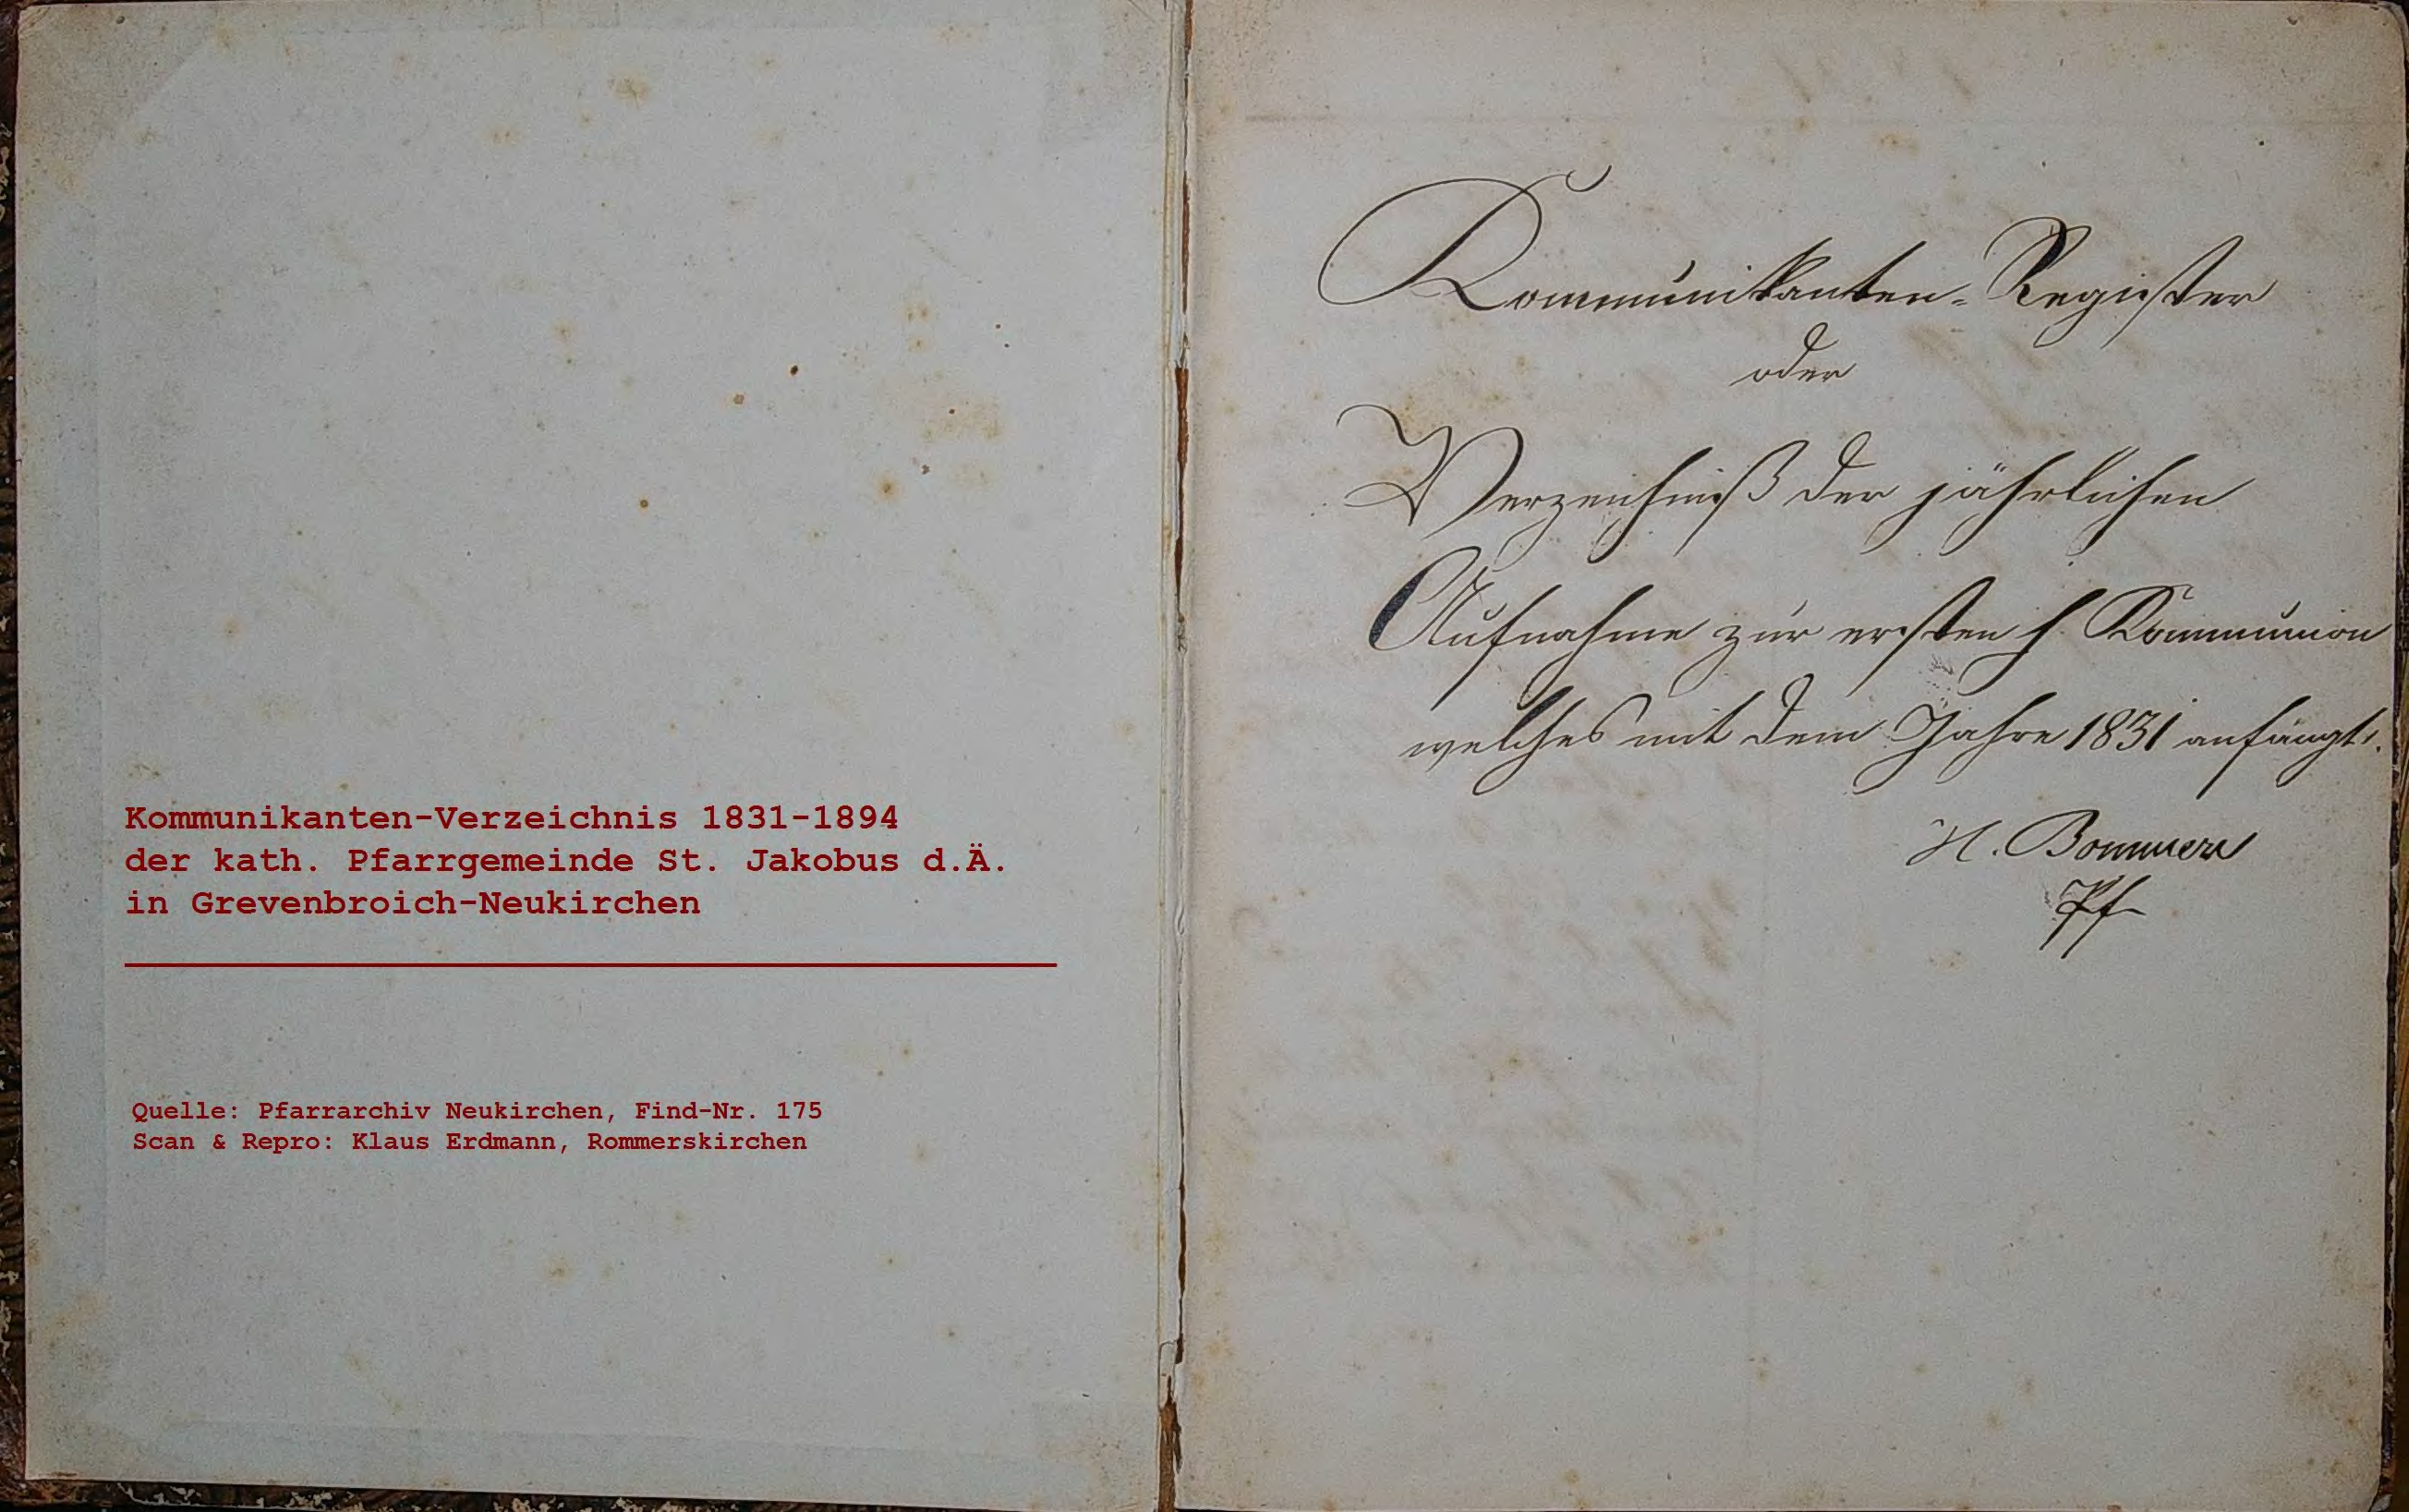 Kommunikanten-Verzeichnis 1831-1894
der kath. Pfarrgemeinde St. Jakobus d.Ä.
in Grevenbroich-Neukirchen
Quelle: Pfarrarchiv Neukirchen, Find-Nr. 175
Scan & Repro: Klaus Erdmann, Rommerskirchen
Kommunikanten-Register
oder
Verzeichniß der jährlichen
Aufnahme zur ersten h. Kommunion
welches mit dem Jahre 1831 anfängt.
H. Bommers
Pf